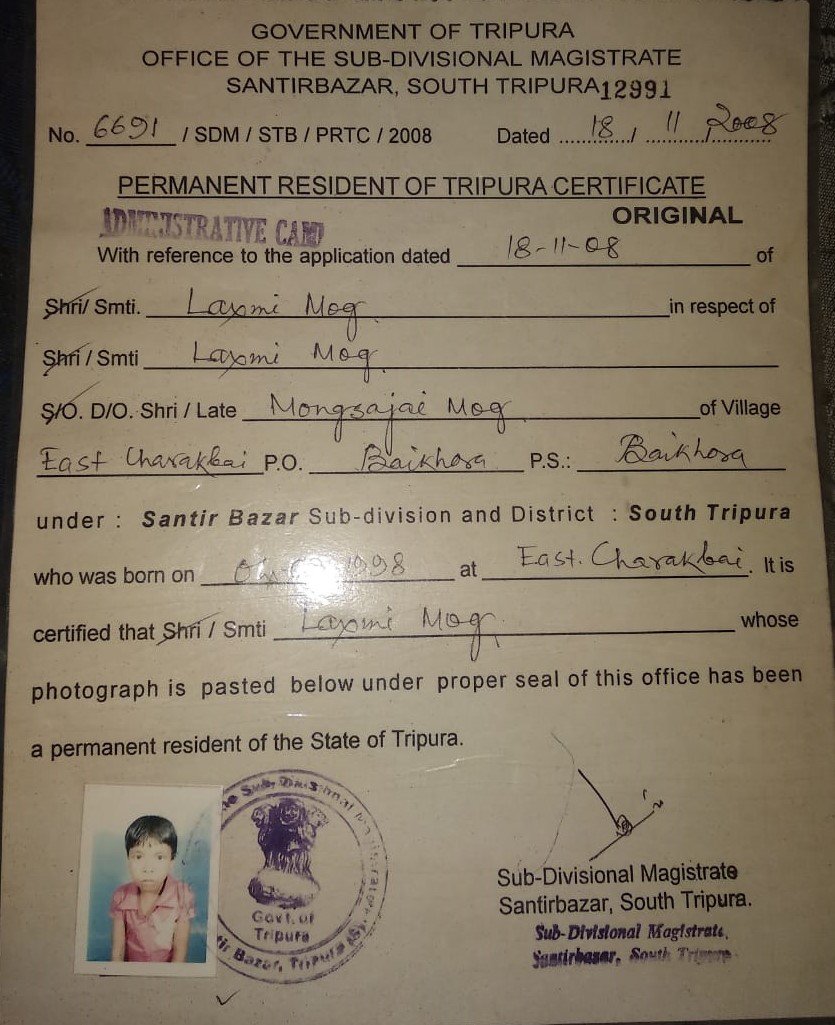 GOVERNMENT OF TRIPURA
OFFICE OF THE SUB-DIVISIONAL MAGISTRATE
SANTIRBAZAR, SOUTH TRIPURA 12991
No. 6691 / SDM / STB / PRTC / 2008 Dated 18 / 11 / 2008
PERMANENT RESIDENT OF TRIPURA CERTIFICATE
ADMINISTRATIVE CAMP ORIGINAL
With reference to the application dated 18-11-08 of
Shri/ Smti. Laxmi Mog in respect of
Shri / Smti Laxmi Mog
S/O. D/O. Shri / Late Mongsajai Mog of Village
East Charakbai P.O. Baikhora P.S.: Baikhora
under : Santir Bazar Sub-division and District : South Tripura
who was born on 1998 at East. Charakbai. It is
certified that Shri / Smti Laxmi Mog whose
photograph is pasted below under proper seal of this office has been
a permanent resident of the State of Tripura.
Sub-Divisional Magistrate
Govt. of
Tripura
Bazar, Tripura (S)
Sub-Divisional Magistrate
Santirbazar, South Tripura.
Sub-Divisional Magistrate,
Santirbazar, South Tripura